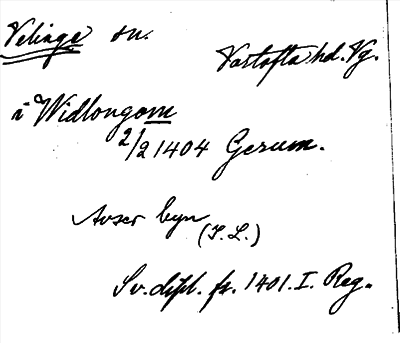 Velinge sn.
Vartofta hd. Vg.
i Widlongom
2/2 1404 Gerum.
Avser byn
(I.L.)
Sv. dipl. fr. 1401. I. Reg.